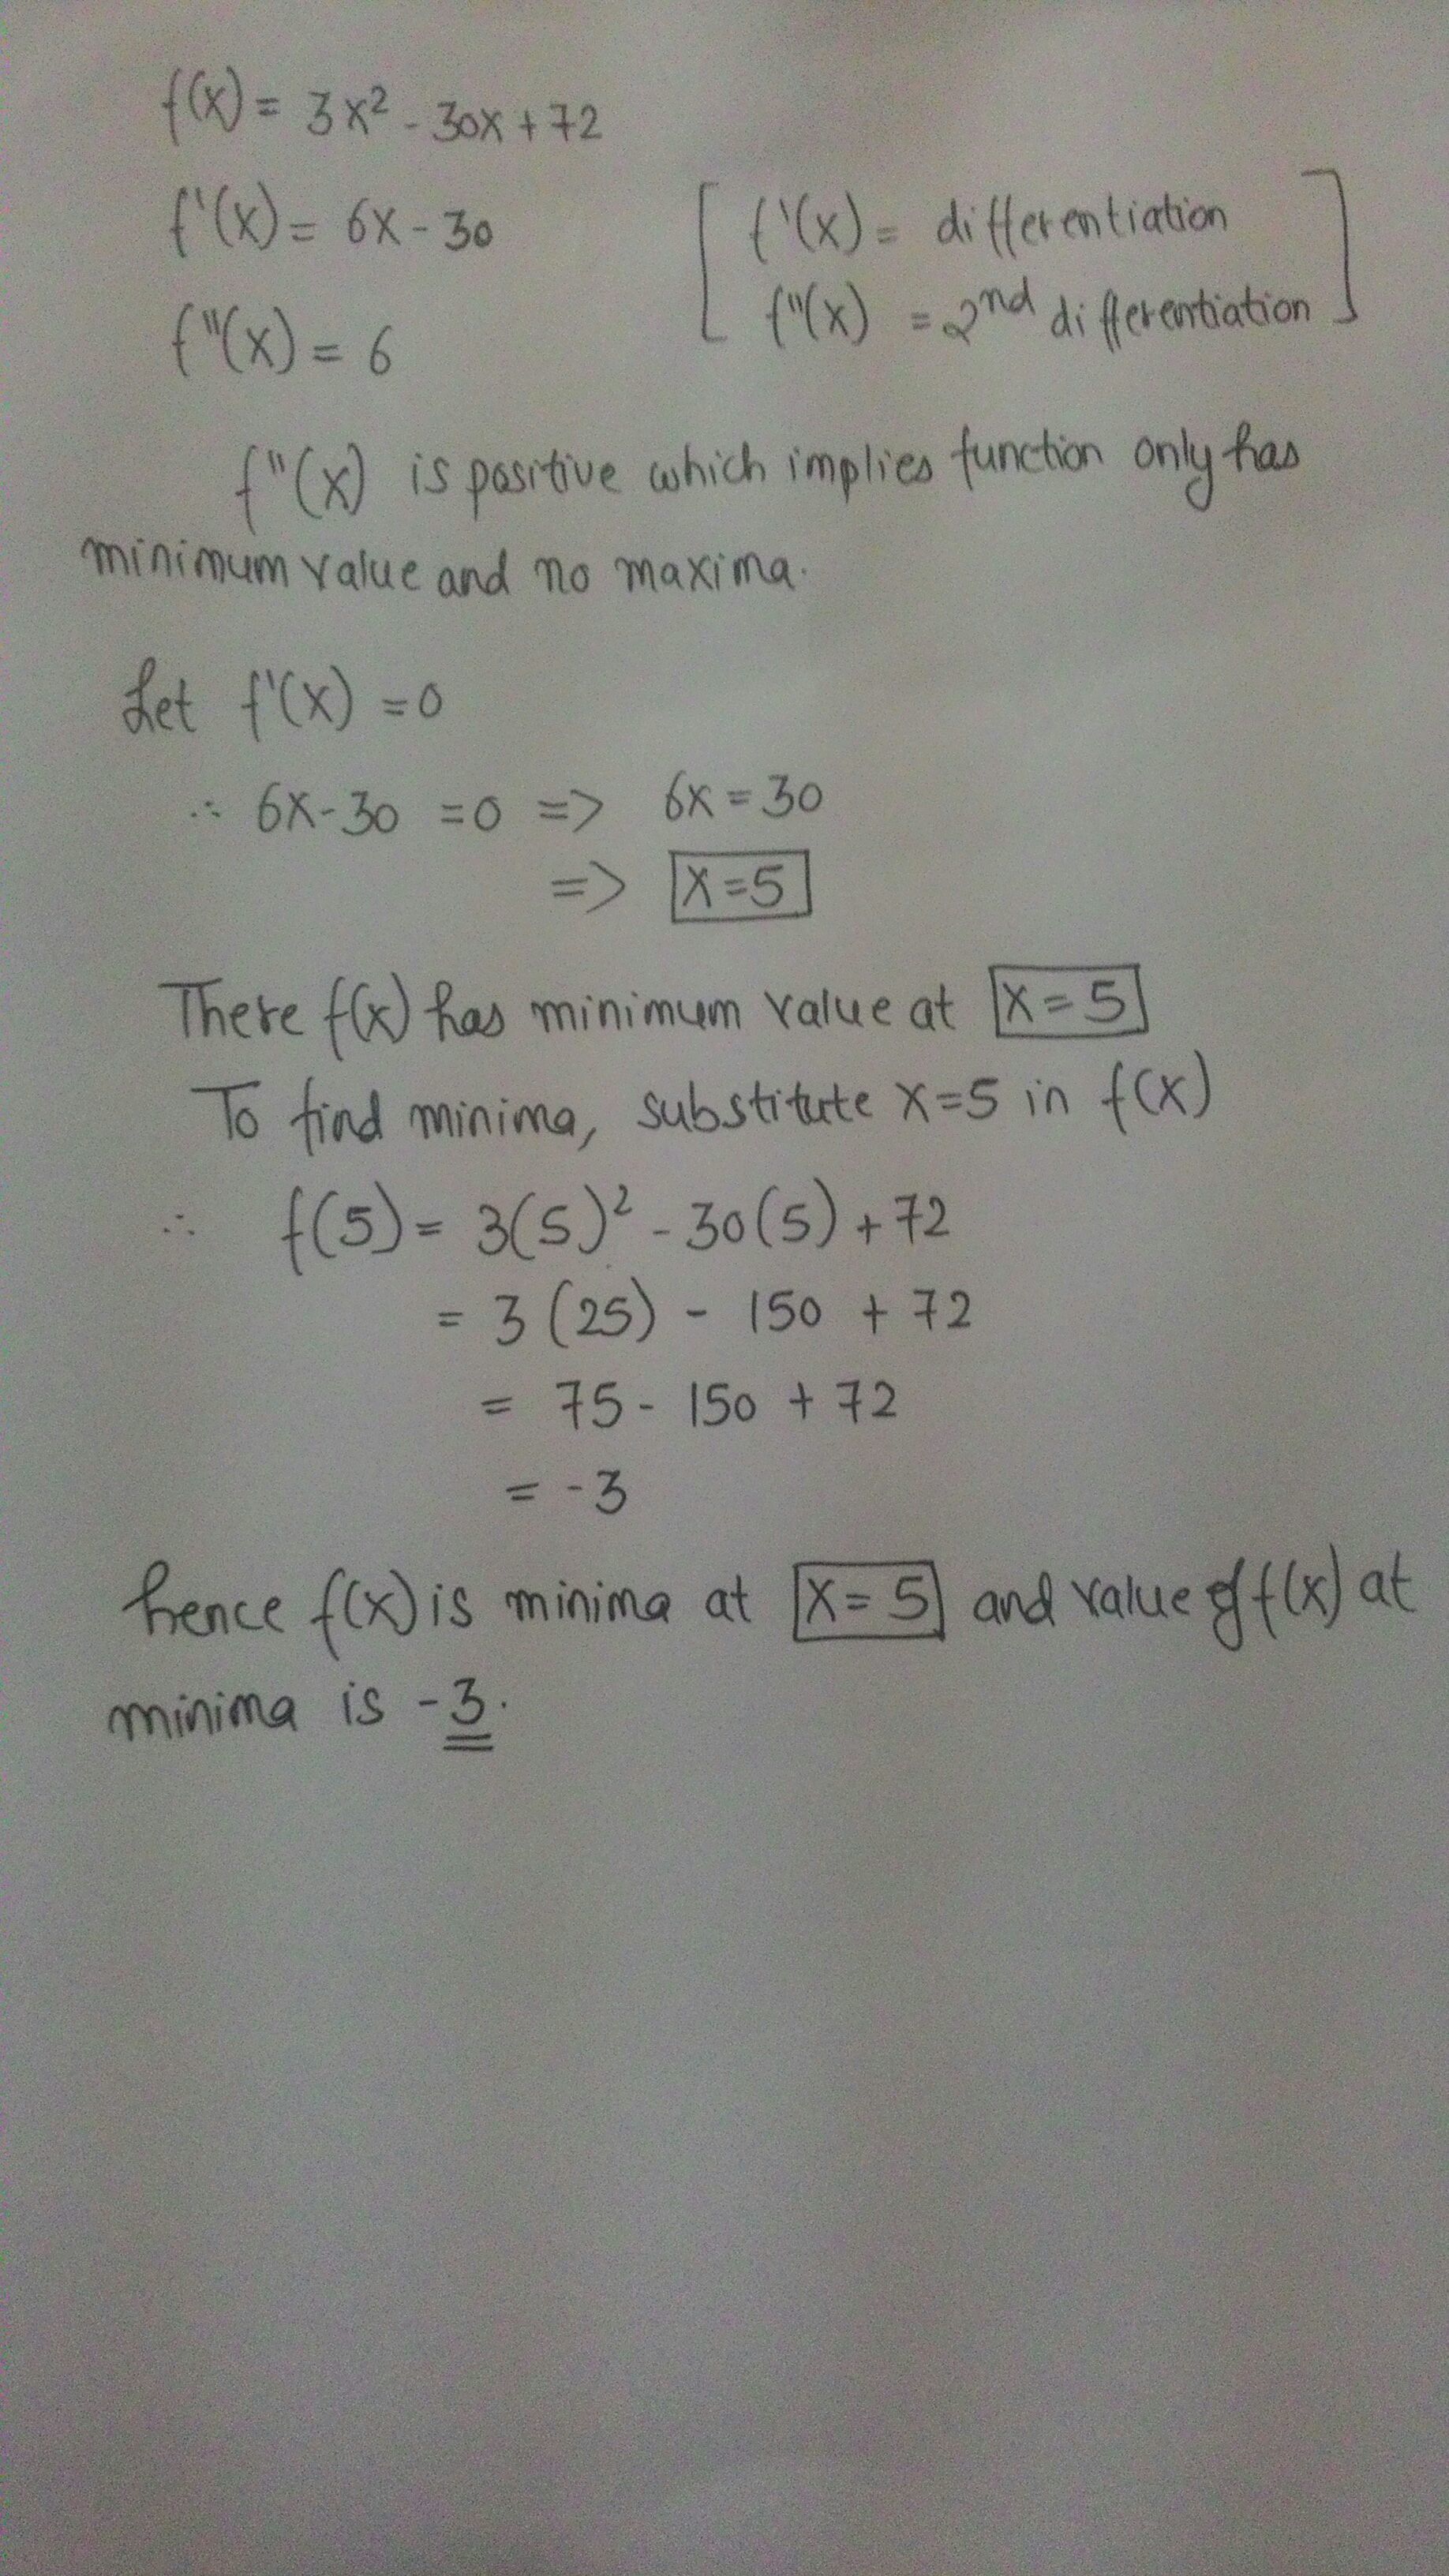 f(x) = 3x² - 30x + 72
f'(x) = 6x - 30
[ f'(x) = differentiation
f"(x) = 2nd differentiation ]
f"(x) = 6
f"(x) is positive which implies function only has
minimum value and no maxima.
Let f'(x) = 0
∴ 6x - 30 = 0 => 6x = 30
=> x = 5
There f(x) has minimum value at x = 5
To find minima, substitute x = 5 in f(x)
∴ f(5) = 3(5)² - 30(5) + 72
= 3(25) - 150 + 72
= 75 - 150 + 72
= -3
hence f(x) is minima at x = 5 and value of f(x) at
minima is -3.